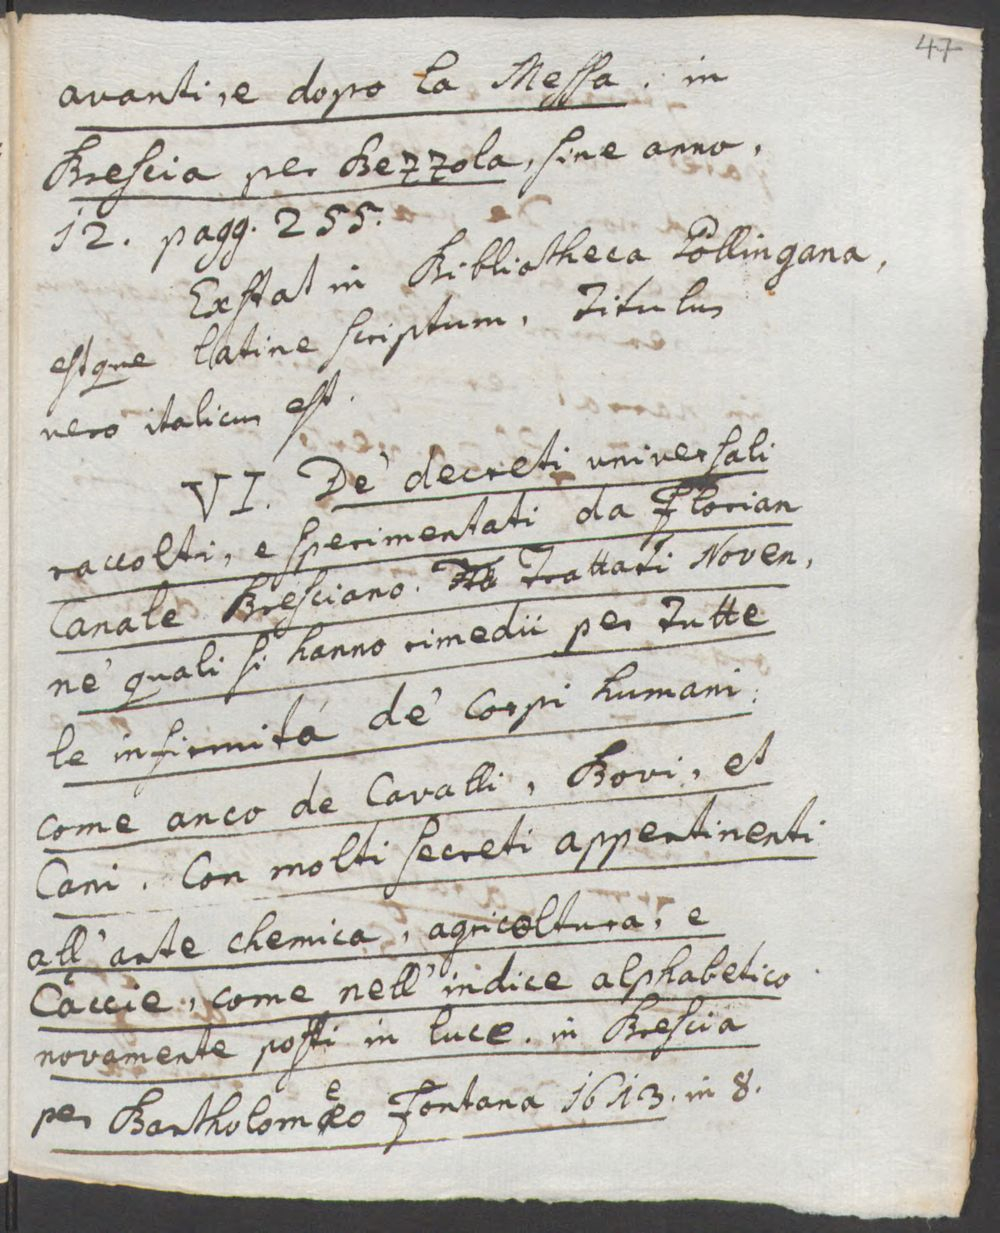 47
avanti, e dopo la Messa. in
Brescia per Bezzola, sine anno,
12. pagg. 255.
Exstat in Bibliotheca Pollingana,
estque latine scriptum, Titulus
vero italicus est.
VI. De' decreti universali
raccolti, e sperimentati da Florian
Canale Bresciano. Trattati Noven,
ne' quali si hanno rimedii per tutte
le infirmitá de' corpi humani:
come anco de Cavalli, Bovi, et
Cani. Con molti secreti appertinenti
all' arte chemica, agricoltura, e
Caccie, come nell' indice alphabetico
novamente posti in luce. in Brescia
per Bartholomeo Fontana 1613. in 8.